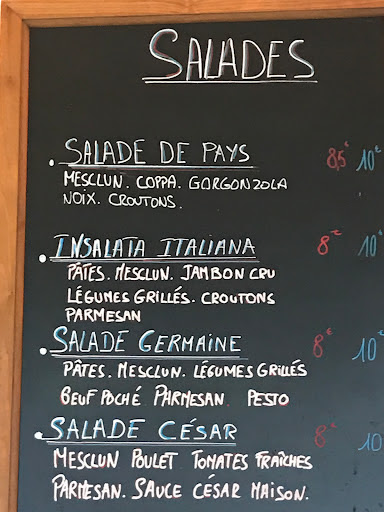 SALADES
. SALADE DE PAYS 8,5€ 10€
MESCLUN. COPPA. GORGONZOLA
NOIX. CROUTONS.
. INSALATA ITALIANA 8€ 10€
PÂTES. MESCLUN. JAMBON CRU
LÉGUMES GRILLÉS. CROUTONS
PARMESAN
. SALADE GERMAINE 8€ 10€
PÂTES. MESCLUN. LÉGUMES GRILLÉS
BŒUF POCHÉ PARMESAN PESTO
. SALADE CÉSAR 8€ 10
MESCLUN POULET TOMATES FRAÎCHES
PARMESAN. SAUCE CÉSAR MAISON.